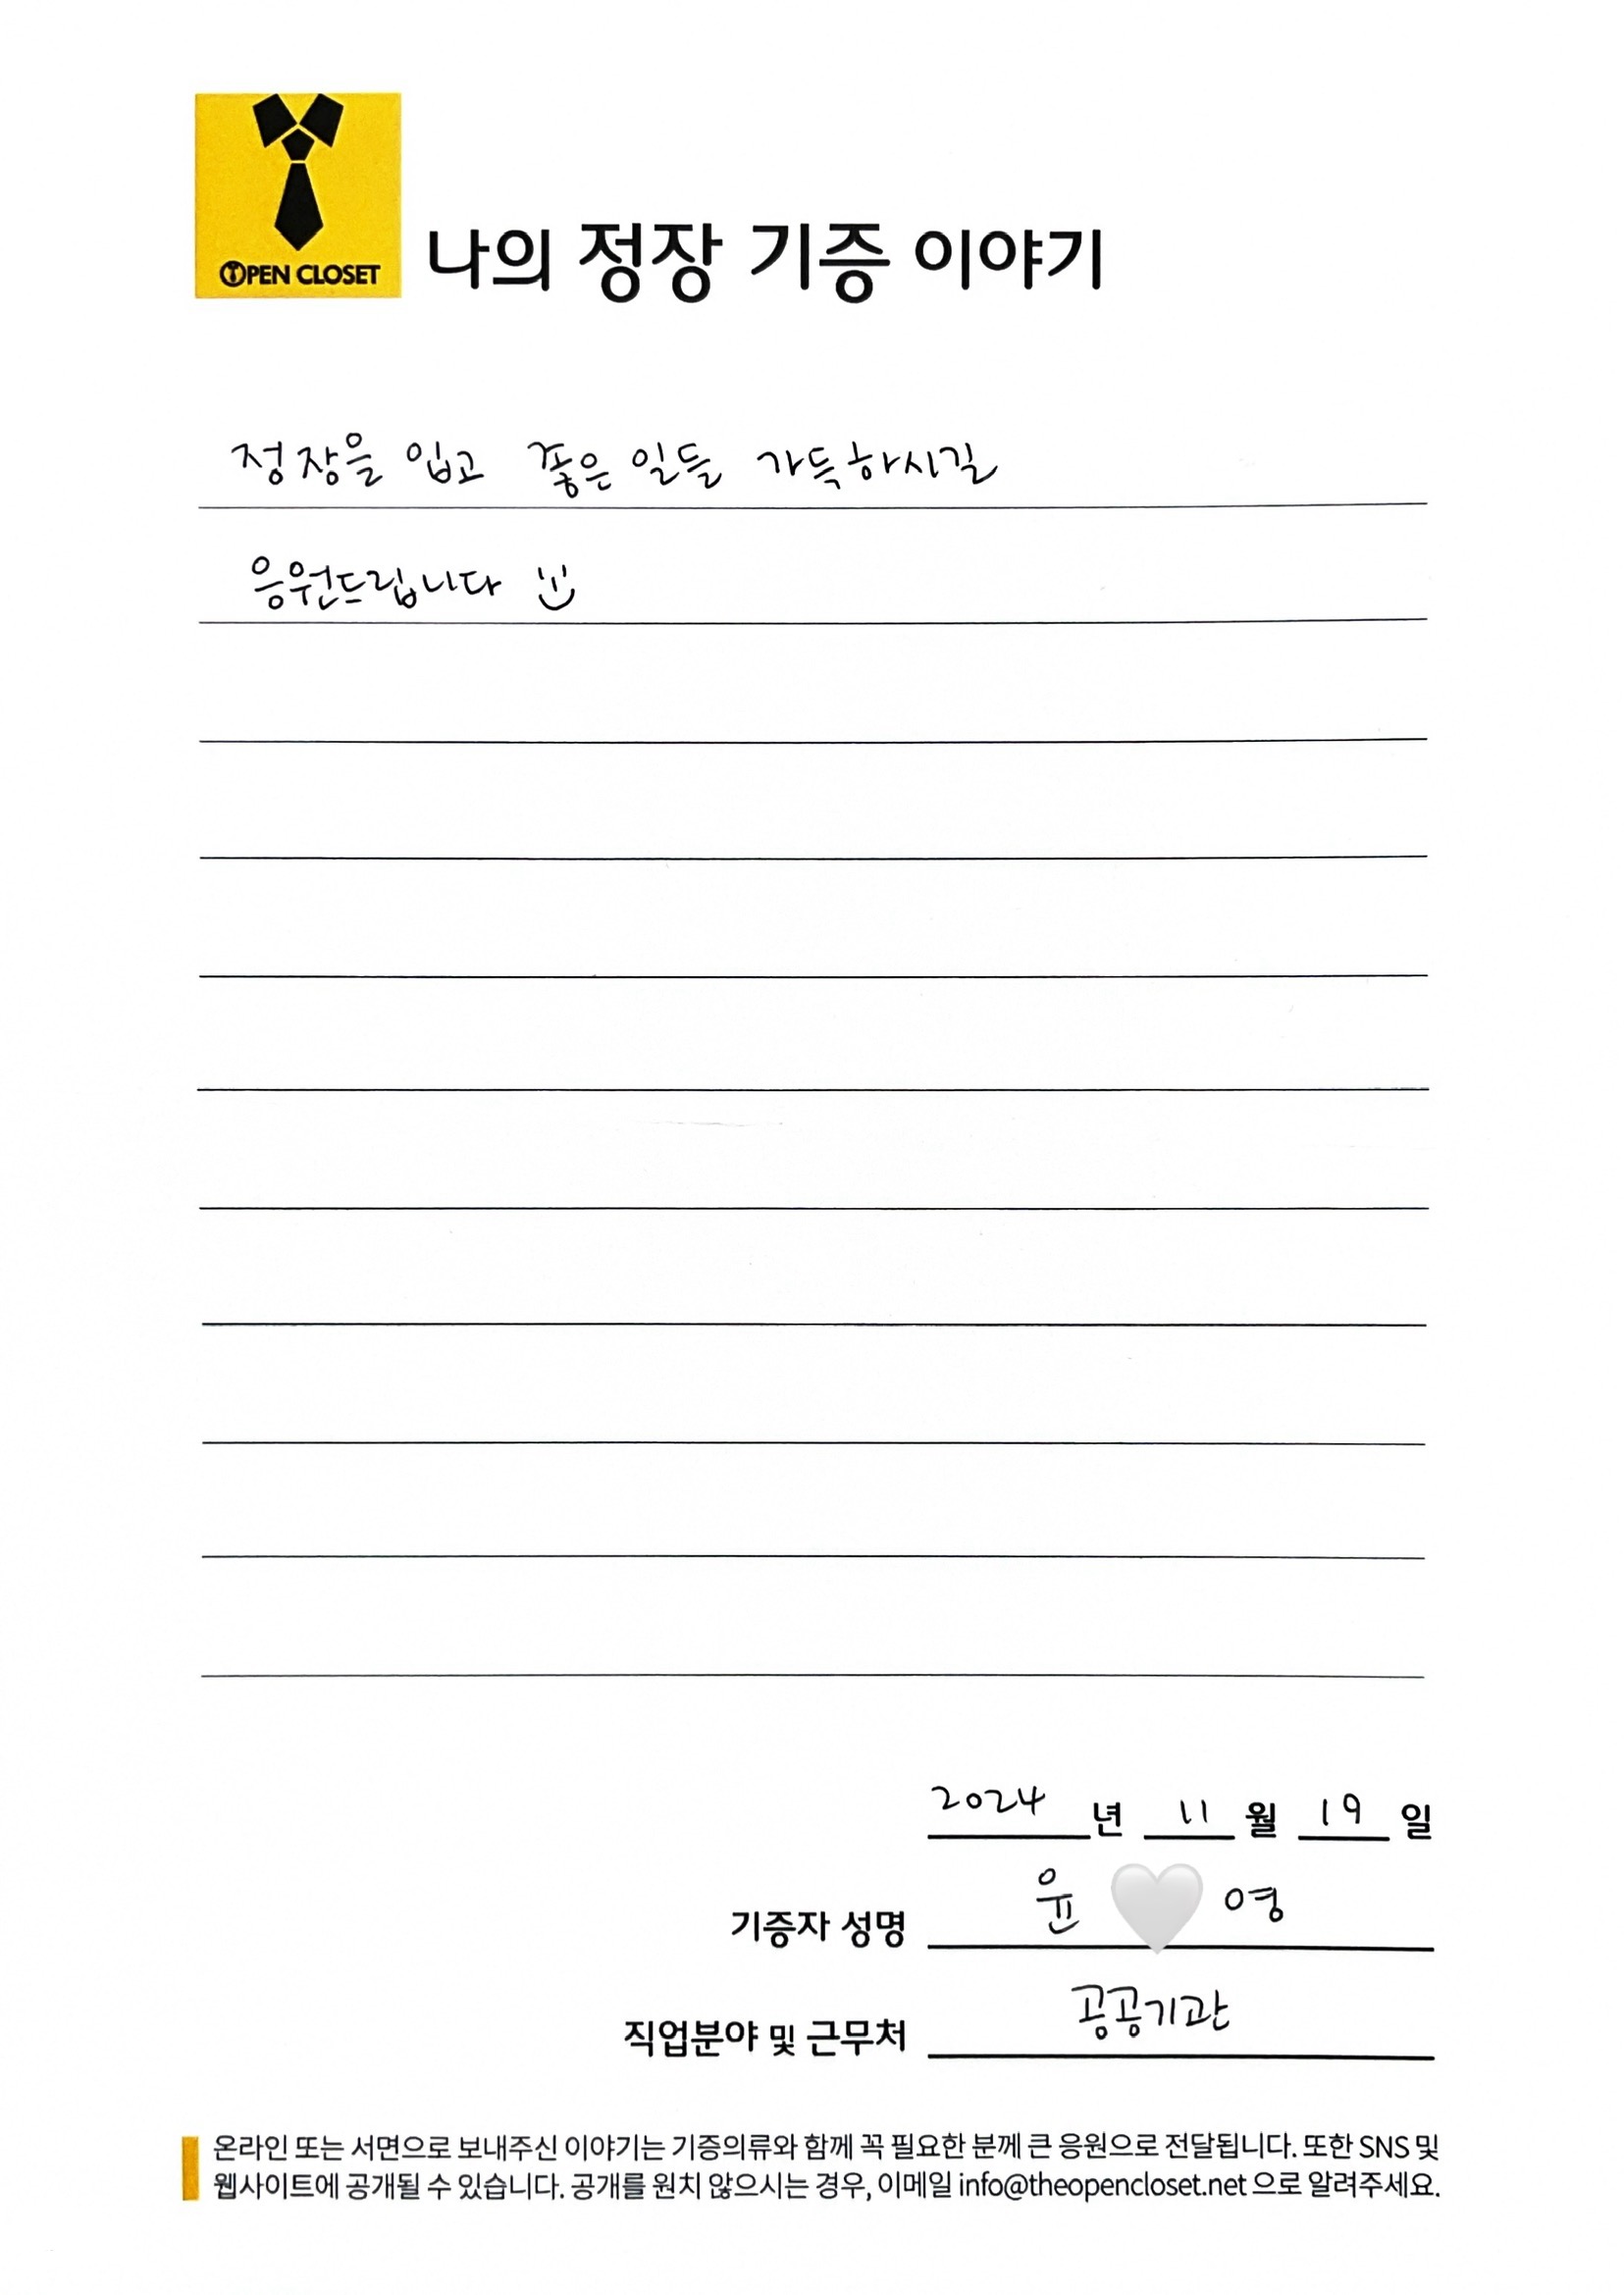 OPEN CLOSET
나의 정장 기증 이야기
정장을 입고 좋은 일들 가득하시길
응원드립니다
2024 년 11 월 19 일
기증자 성명 윤 영
직업분야 및 근무처 공공기관
온라인 또는 서면으로 보내주신 이야기는 기증의류와 함께 꼭 필요한 분께 큰 응원으로 전달됩니다. 또한 SNS 및
웹사이트에 공개될 수 있습니다. 공개를 원치 않으시는 경우, 이메일 info@theopencloset.net 으로 알려주세요.